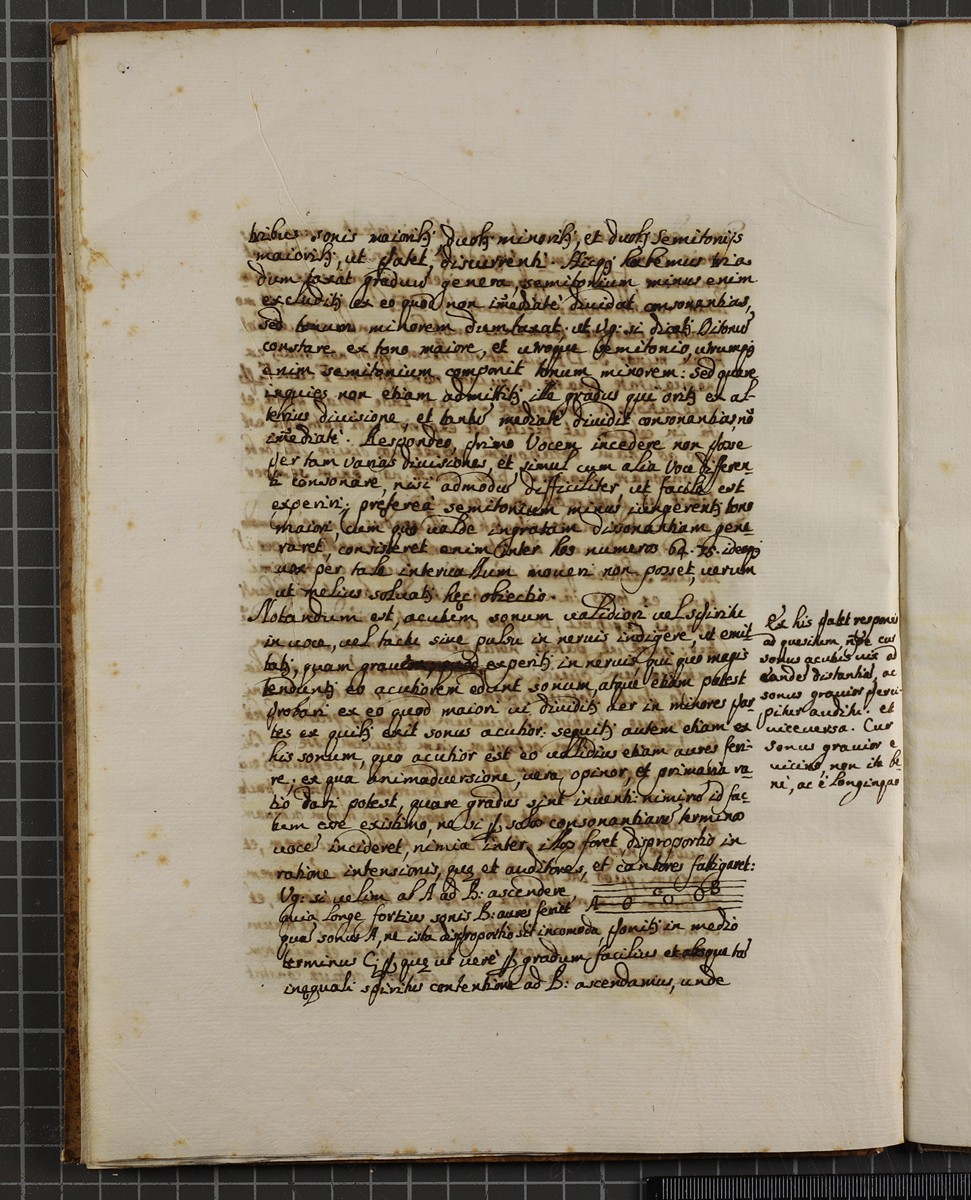 tribus tonis maiorib; duob; minorib; et duob; semitonijs
maiorib; ut patet discurrenti. Atq; habemus tria
dum taxat graduũ genera, semitonium minus enim
excludit; ex eo quod non im̃ediatè diuidat consonantias,
sed tonum minorem dum taxat. ut Vg: si dicat; Ditonũ
constare ex tono maiore, et utroque semitonio, utrumq;
enim semitonium componit tonum minorem: sed quare
inquies non etiam admittit; ille gradus qui orit; ex al-
terius diuisione, et tantũ mediatè diuidit consonantias, nõ
im̃ediatè. Respondeo, primo Vocem incedere non posse
per tam varias diuisiones, et simul cum alia Voce differen-
ti consonare, nisi admodũ difficiliter, ut facile est
experiri; preterea semitonium minus iungerent; tono
maiori, cum quo ualde ingratam dissonantiam gene
raret, consisteret enim inter hos numeros 64. 75. ideoq;
uox per tale interuallum moueri non posset, uerum
ut melius soluat; hęc obiectio.
Notandum est, acutum sonum validiori vel spiritu
in uoce, vel tactu siue pulsu in neruis indigere, ut emit
tat;, quam graue experit; in neruis, qui quo magis
tendunt; eo acutiorem edunt sonum, atque etiam potest
probari ex eo quod maiori ui diuidit; aer in minores par
tes ex quib; exit sonus acutior: sequit; autem etiam ex
his sonum, quo acutior est eo validius etiam aures feri-
re; ex qua animaduersione, uera, opinor, et primaria ra-
tio dari potest, quare gradus sint inuenti nimirũ id fac-
tum eẽ existimo, ne si p solos consonantiarũ terminos
uoce incideret, nimia inter illos foret disproportio in
ratione intensionis, quę et auditores, et cantores fatigaret:
Vg: si uelim ab A ad B: ascendere,
quia longe fortius sonus B: aures feriet A B
quã sonus A, ne ista disproportio sit incomoda, ponit; in medio
terminus C; p quę ut uerè p gradum facilius et absque tã
inęquali spiritus contentione ad B: ascendamus, unde
Ex his patet responsio
ad quesitum nẽpe cur
sonus acutus uix ad
eandẽ distantiã, ac
sonus grauior perci-
pitur auditu. et
uiceuersa. Cur
sonus grauior e
uicino non ita be
ni, ac è longinquo